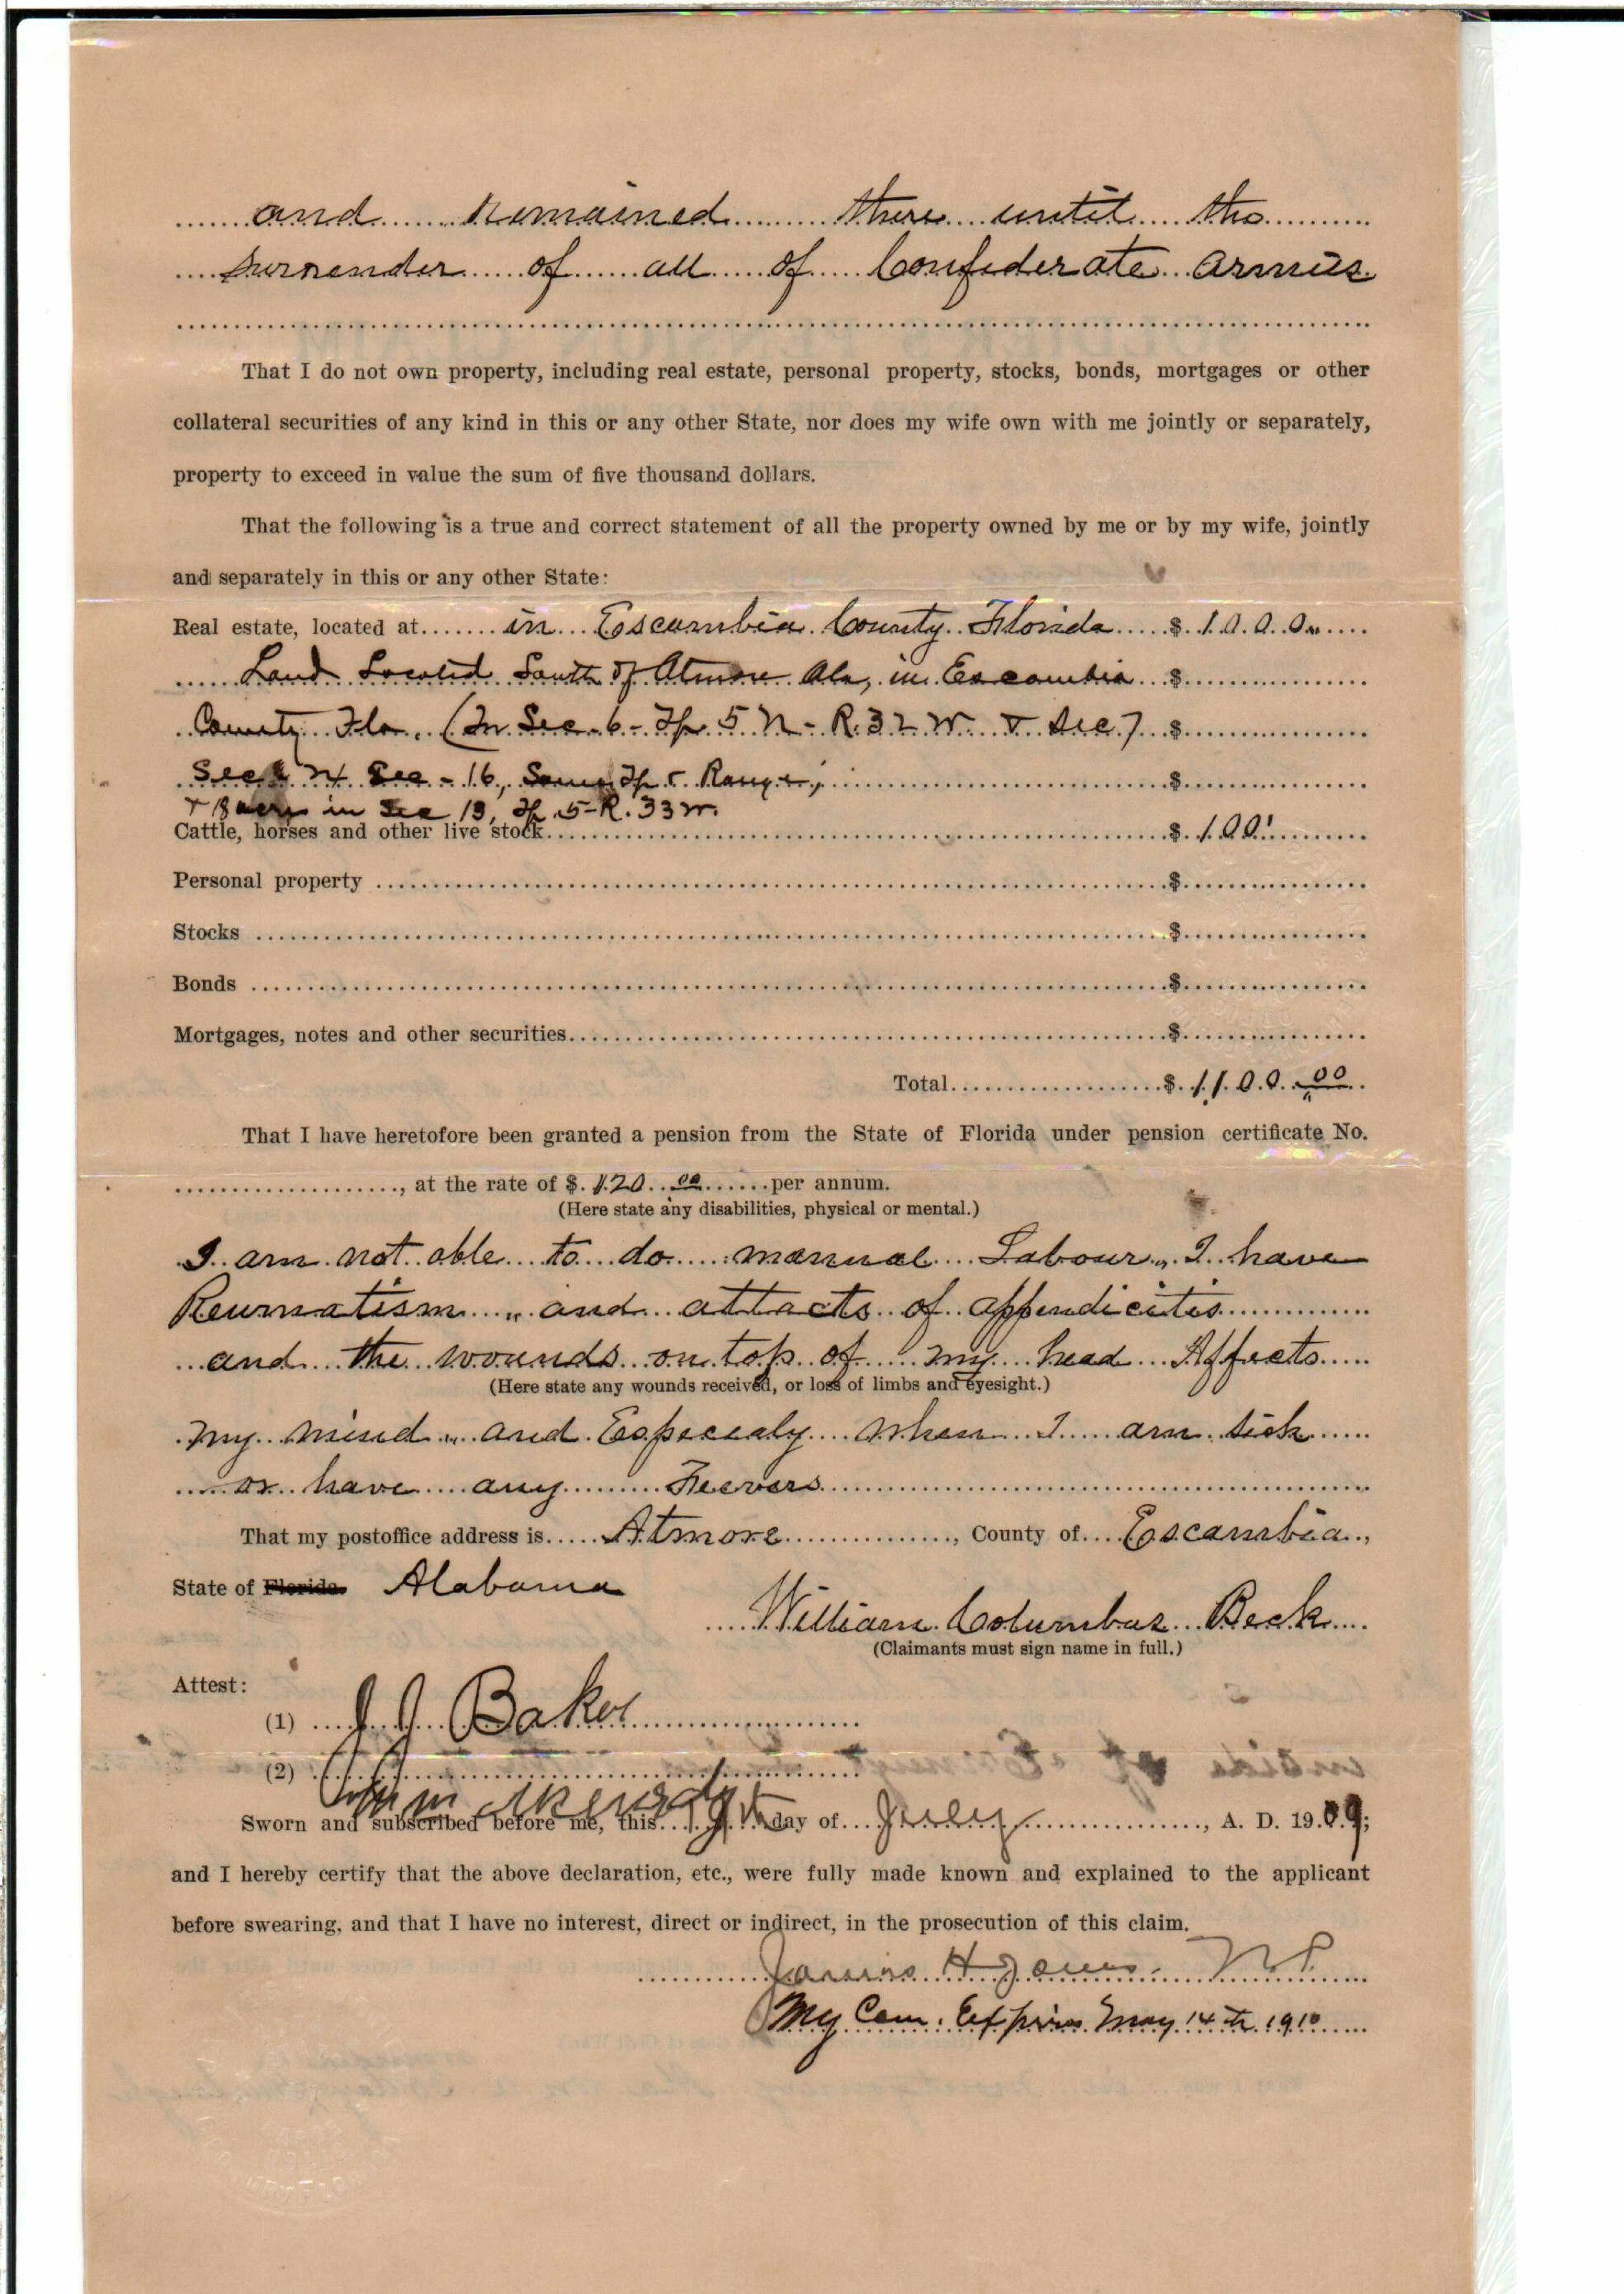 and remained there until the
surrender of all of Confederate armies
That I do not own property, including real estate, personal property, stocks, bonds, mortgages or other
collateral securities of any kind in this or any other State, nor does my wife own with me jointly or separately,
property to exceed in value the sum of five thousand dollars.
That the following is a true and correct statement of all the property owned by me or by my wife, jointly
and separately in this or any other State:
Real estate, located at in Escambia County Florida $ 1000
Land Located South of Atmore Ala, in Escambia $
County Fla. (In Sec. 6 - Tp 5 N - R. 32 W & Sec 7 $
Sec - 16, Same Tp & Range, $
+ 18 acres in Sec 13, Tp 5 - R. 33 W.
Cattle, horses and other live stock $ 100
Personal property $
Stocks $
Bonds $
Mortgages, notes and other securities $
Total $ 1100 00
That I have heretofore been granted a pension from the State of Florida under pension certificate No.
, at the rate of $ 120 00 per annum.
(Here state any disabilities, physical or mental.)
I am not able to do manual Labour,, I have
Reumatism ,, and attacts of appendicitis
and the wounds on top of my head Affects
(Here state any wounds received, or loss of limbs and eyesight.)
my mind ,, and Especealy when I am sick
or have any Feevers
That my postoffice address is Atmore, County of Escambia,
State of Florida. Alabama
William Columbus Beck
(Claimants must sign name in full.)
Attest:
(1) J J Baker
(2)
Sworn and subscribed before me, this 19th day of July, A. D. 1909;
and I hereby certify that the above declaration, etc., were fully made known and explained to the applicant
before swearing, and that I have no interest, direct or indirect, in the prosecution of this claim.
H Jones. N P
My Com. Expires May 14th 1910